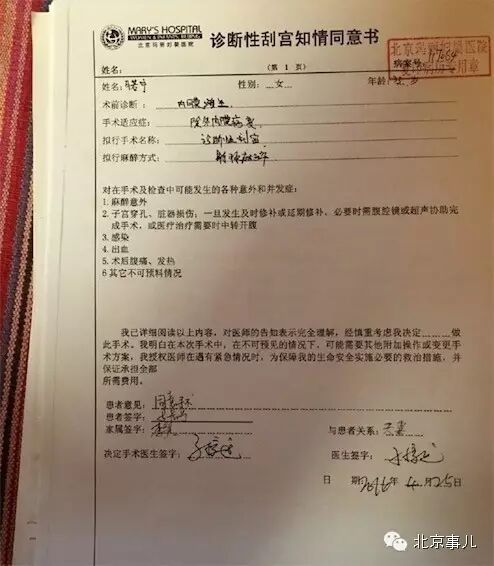 MARY'S HOSPITAL
WOMEN & INFANTS, BEIJING
北京玛丽妇婴医院
诊断性刮宫知情同意书
(第 1 页)
病案号
姓名:
姓名: 性别: 女 年龄: 岁
术前诊断:
手术适应症:
拟行手术名称: 诊断性刮宫
拟行麻醉方式:
对在手术及检查中可能发生的各种意外和并发症:
1.麻醉意外
2.子宫穿孔、脏器损伤;一旦发生及时修补或延期修补、必要时需腹腔镜或超声协助完
成手术,或医疗治疗需要时中转开腹
3.感染
4.出血
5.术后腹痛、发热
6其它不可预料情况
我已详细阅读以上内容,对医师的告知表示完全理解,经慎重考虑我决定 做
此手术。我明白在本次手术中,在不可预见的情况下,可能需要其他附加操作或变更手
术方案,我授权医师在遇有紧急情况时,为保障我的生命安全实施必要的救治措施,并
保证承担全部
所需费用。
患者意见:
患者签字:
家属签字: 与患者关系:
决定手术医生签字: 医生签字:
日 期 2016年 4月25日
北京事儿